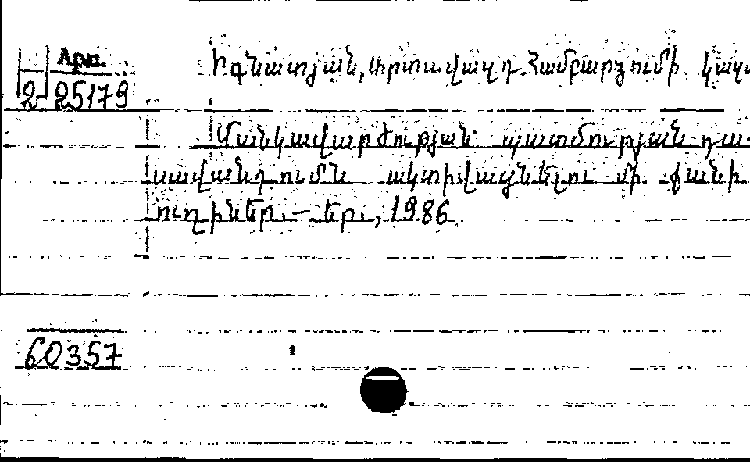 Арм.
2 25179
Իգնատյան, Արտավազդ Համբարձումի
Մանկավարժության պատմության դա-
սավանդումն ակտիվացնելու մի քանի
ուղիներ. — Եր., 1986
60357